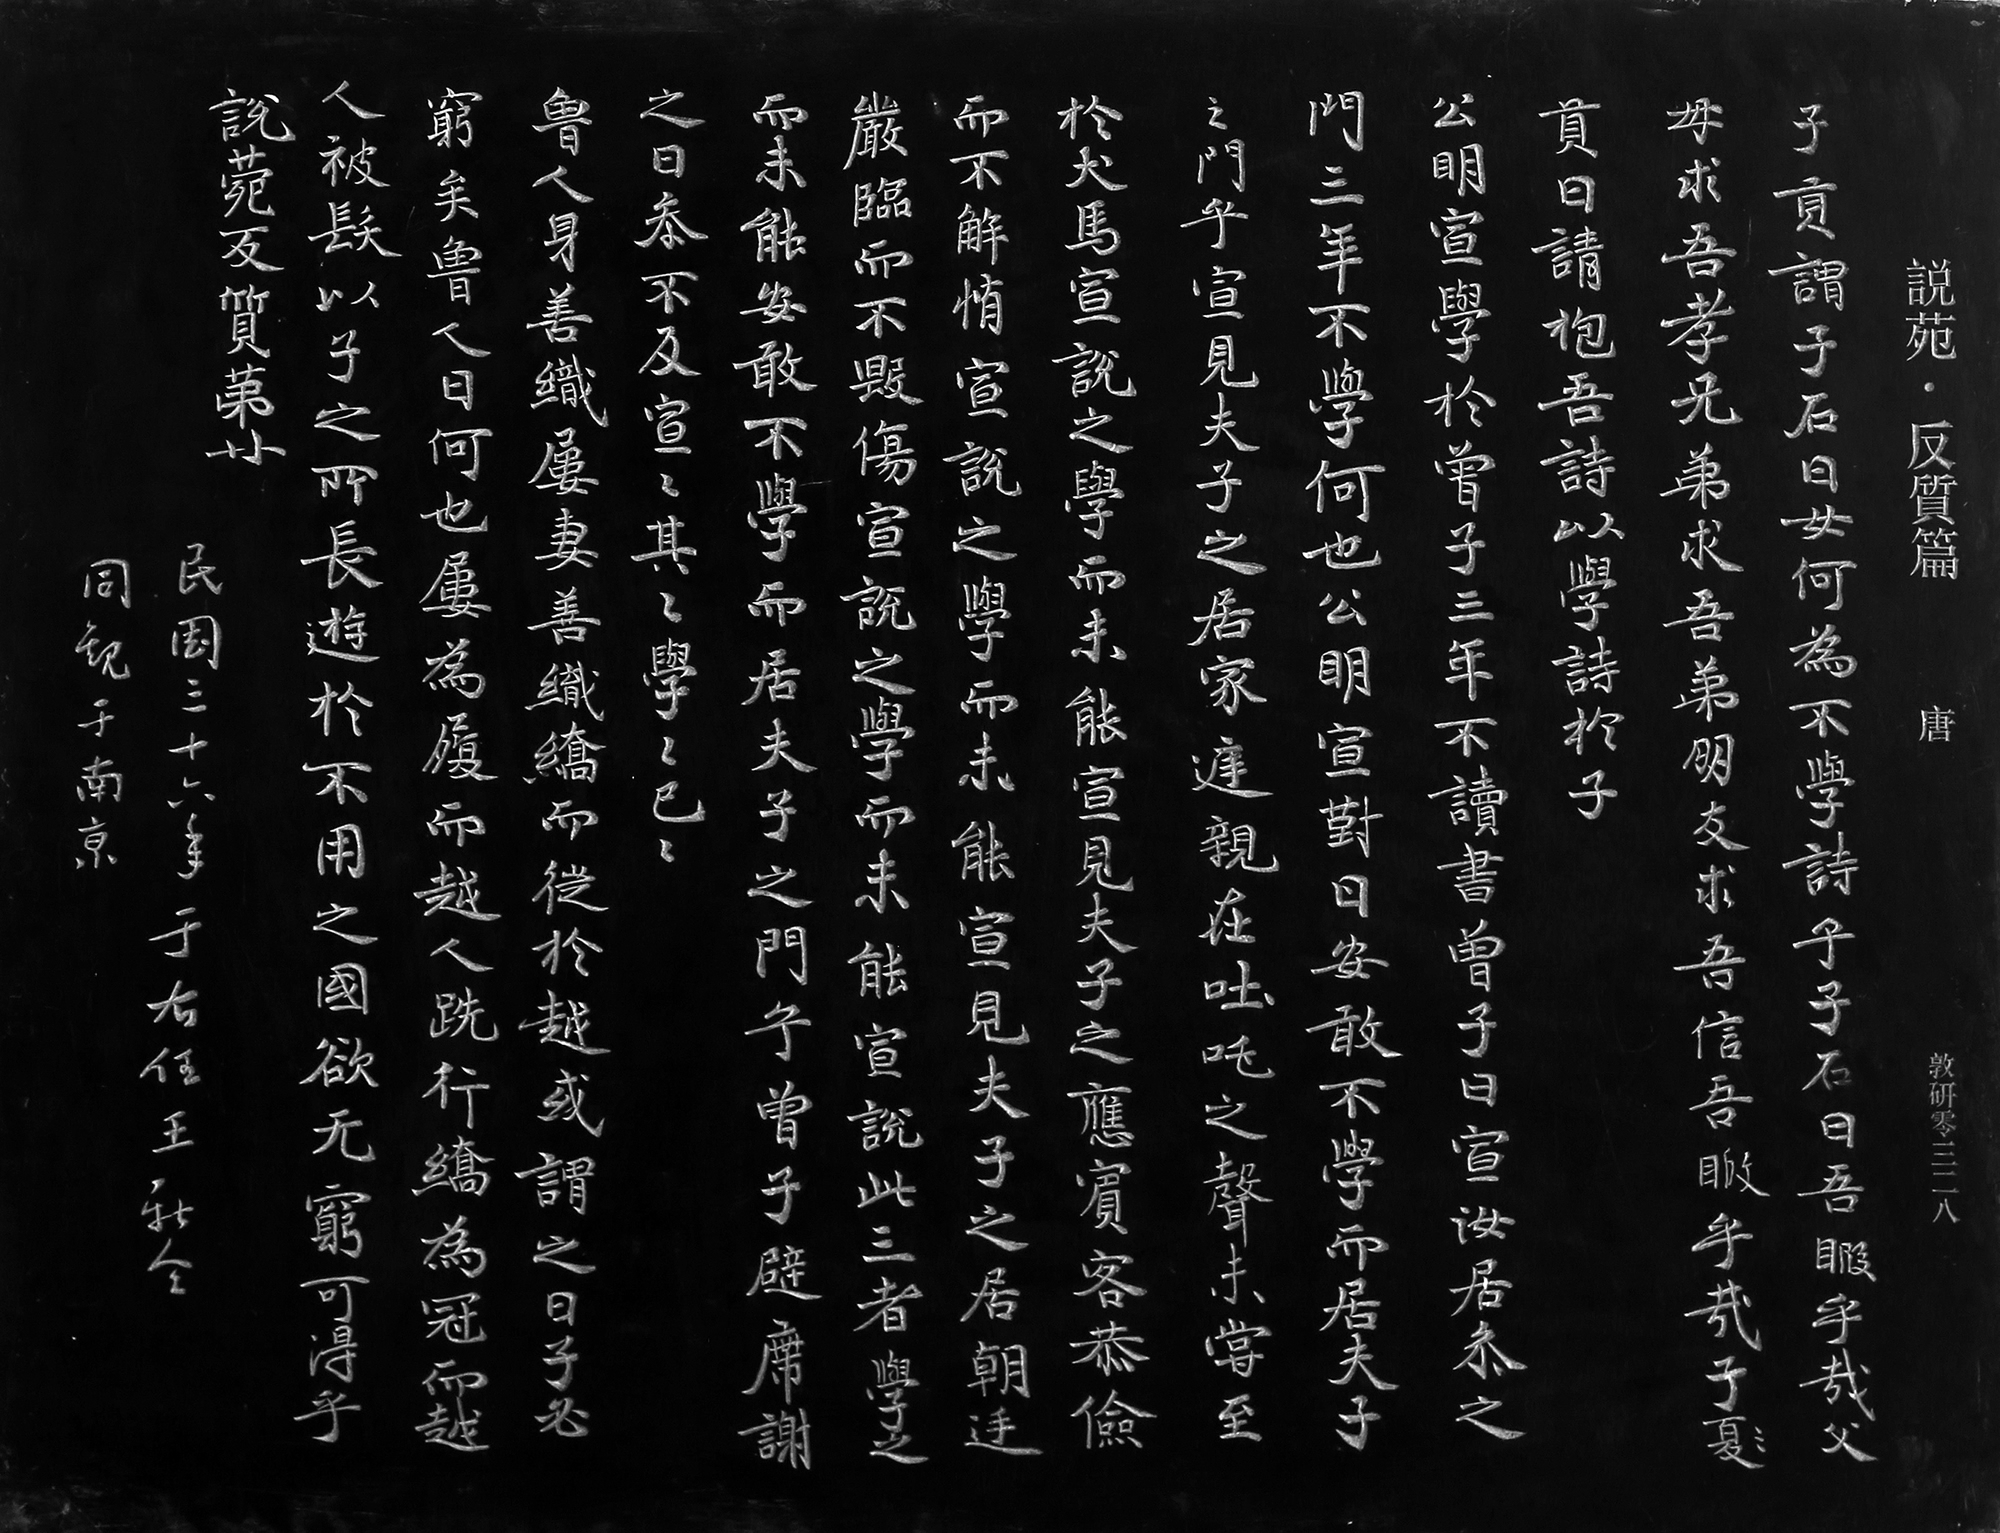 説苑·反質篇 唐 敦研零三二八
子貢謂子石曰女何為不學詩乎子石曰吾暇乎哉父
母求吾孝兄弟求吾弟朋友求吾信吾暇乎哉子夏〻
貢曰請袍吾詩以學詩於子
公明宣學於曾子三年不讀書曾子曰宣汝居叅之
門三年不學何也公明宣對曰安敢不學而居夫子
之門乎宣見夫子之居家遅親在吐吒之聲未甞至
於犬馬宣說之學而未能宣見夫子之應賓客恭儉
而不解惰宣說之學而未能宣見夫子之居朝廷
嚴臨而不毀傷宣說之學而未能宣說此三者學之
而未能安敢不學而居夫子之門乎曾子避席謝
之曰叅不及宣〻其〻學〻已〻
魯人身善織屨妻善織縞而從於越或謂之曰子必
窮矣魯人曰何也屨為履而越人跣行縞為冠而越
人被髮以子之所長遊於不用之國欲无窮可得乎
說菀反質第廿
民國三十六年 于右任 王新令
同觀于南京